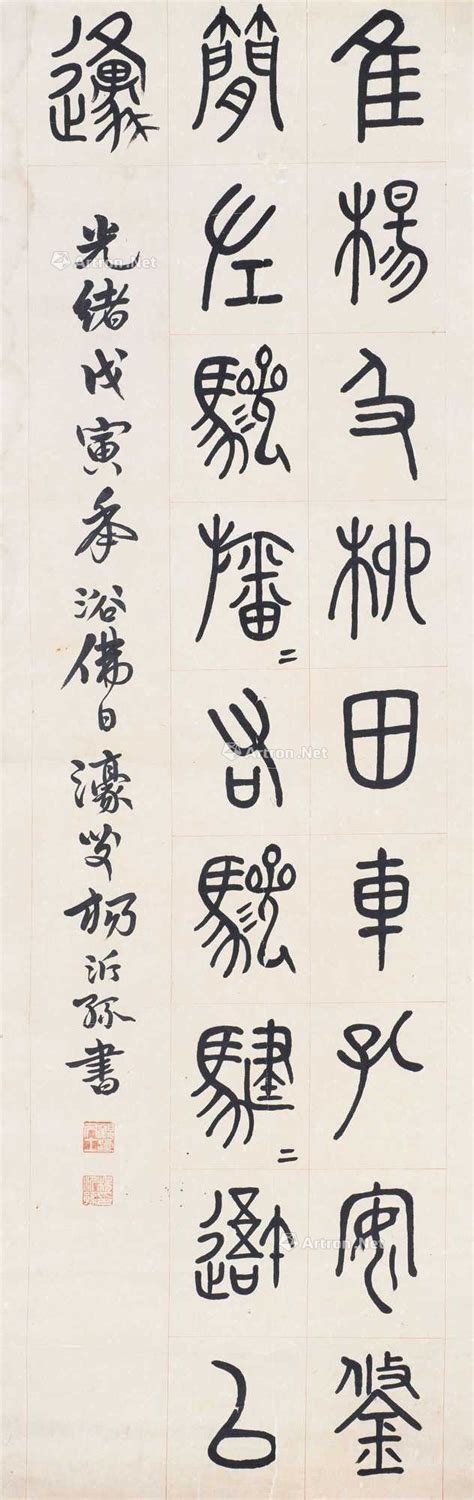 隹楊及柳田車孔安鋚
簡左驂旛=右驂騝=以
邍
光緒戊寅年浴佛日濠叟楊沂孫書
Artron.Net
Artron.Net
Artron.Net